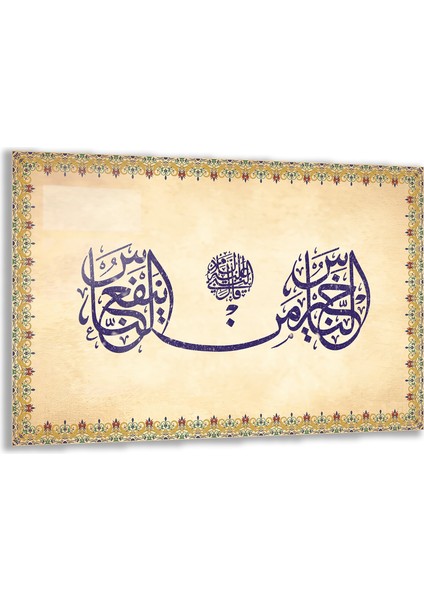 خير الناس من ينفع الناس